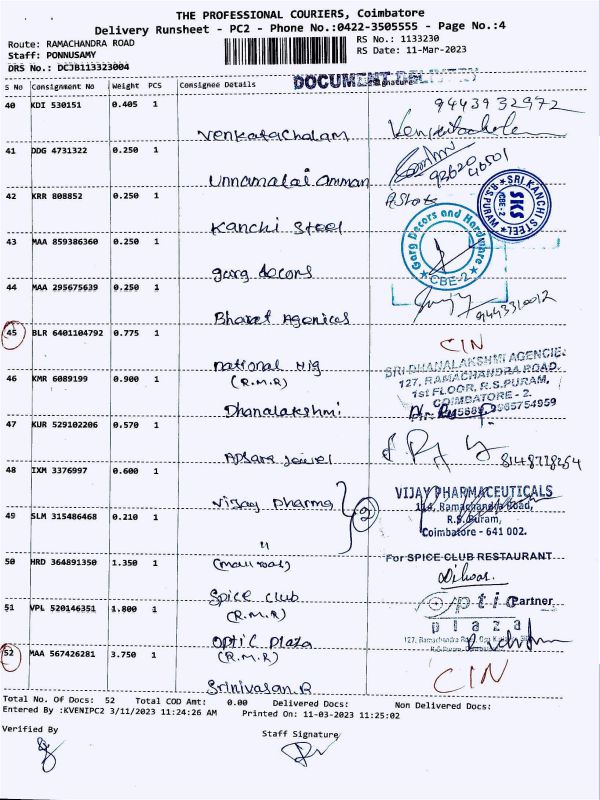 THE PROFESSIONAL COURIERS, Coimbatore
Delivery Runsheet - PC2 - Phone No.:0422-3505555 - Page No.:4
Route: RAMACHANDRA ROAD RS No.: 1133230
Staff: PONNUSAMY RS Date: 11-Mar-2023
DRS No.: DCJB113323004
DOCUMENT DELIVERY
S No Consignment No Weight PCS Consignee Details Signature
40 KDI 530151 0.405 1 9443932972
Venkatachalam
41 DDG 4731322 0.250 1
Unnamalai amman
42 KRR 808852 0.250 1
SRI KANCHI STEEL R.S.PURAM CBE-2 SKS
Kanchi Steel
43 MAA 859386360 0.250 1
Garg Decors and Hardware CBE-2
garg decors
44 MAA 295675639 0.250 1
Bharat Agenices
45 BLR 6401104792 0.775 1 CIN
national Hig
(R.M.R)
46 KMR 6089199 0.900 1
SRI DHANALAKSHMI AGENCIE
127, RAMACHANDRA ROAD,
1st FLOOR, R.S.PURAM,
COIMBATORE - 2.
Dhanalakshmi
47 KUR 529102206 0.570 1
Apsara Jewel 8148778254
48 IXM 3376997 0.600 1
Vijay Pharma 2
VIJAY PHARMACEUTICALS
114, Ramachandra Road,
R.S.Puram,
Coimbatore - 641 002.
49 SLM 315486468 0.210 1
"
50 HRD 364891350 1.350 1
For SPICE CLUB RESTAURANT
Partner
Spice club
(R.M.R)
51 VPL 520146351 1.800 1
optic plaza
127, Ramachandra
Optic Plaza
(R.M.R)
52 MAA 567426281 3.750 1 CIN
Srinivasan.R
Total No. Of Docs: 52 Total COD Amt: 0.00 Delivered Docs: Non Delivered Docs:
Entered By :KVENIPC2 3/11/2023 11:24:26 AM Printed On: 11-03-2023 11:25:02
Verified By Staff Signature